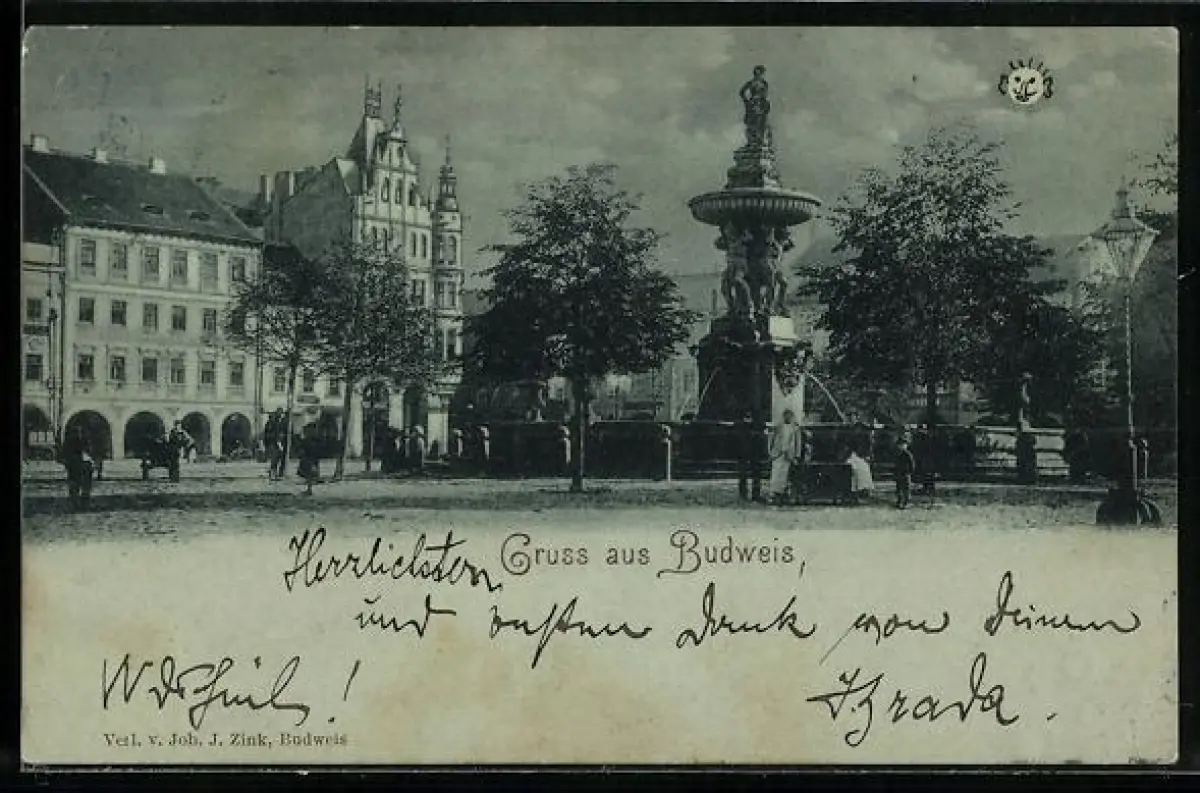 Herrlichsten Gruss aus Budweis,
und besten Dank von Deinem
Verl. v. Joh. J. Zink, Budweis